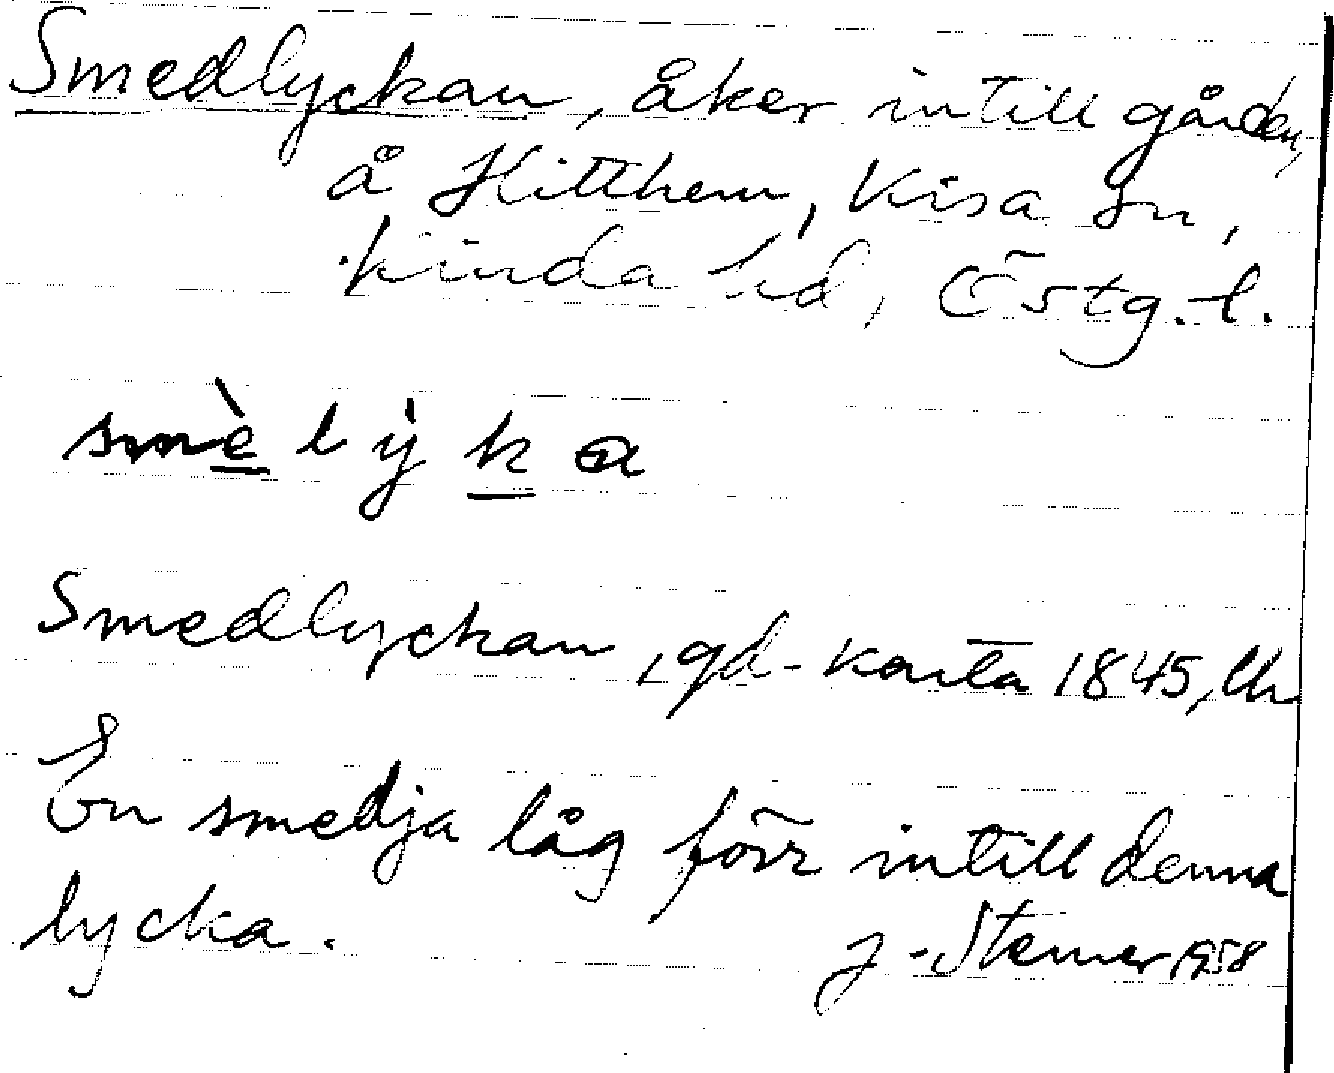 Smedlyckan, åker intill gården,
å Hitthem, Kisa sn,
Kinda hd, Östg. l.
smè l ỳ k a
Smedlyckan, gd-karta 1845,
En smedja låg förr intill denna
lycka.
J. Sterner 1958